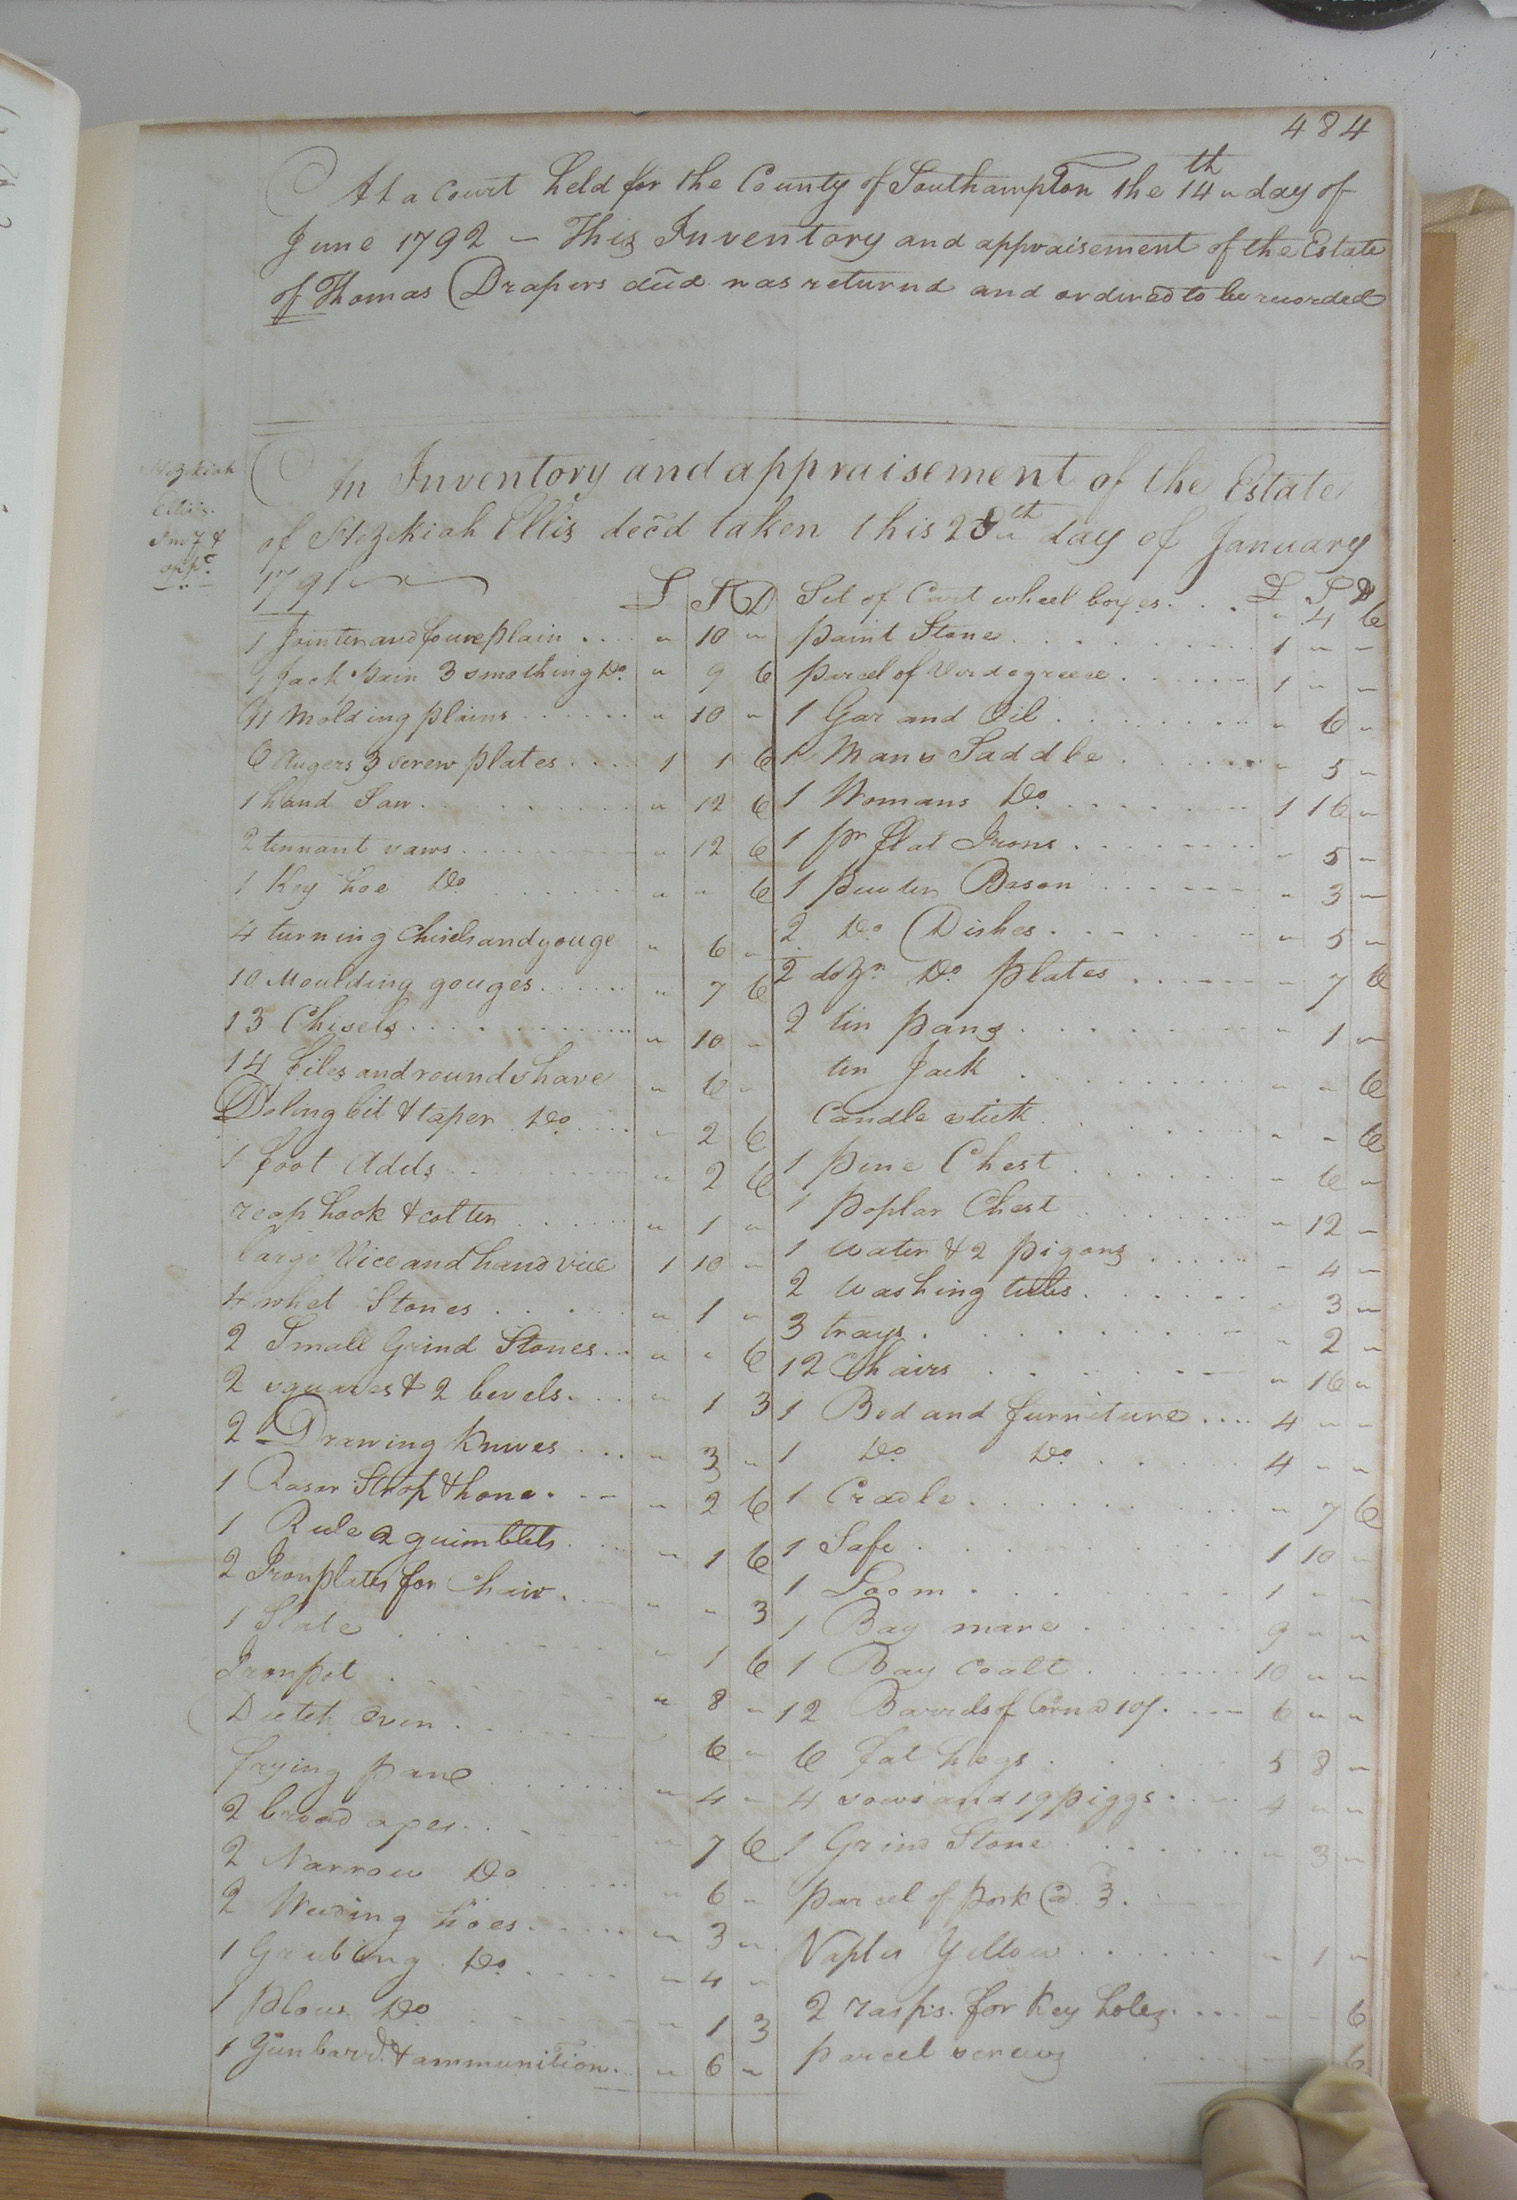 484
At a Court held for the County of Southampton the 14th day of
June 1792 – This Inventory and appraisement of the Estate
of Thomas Drapers decd was returnd and ordered to be recorded
Hezekiah
Ellis's
Invy &
appt
An Inventory and appraisement of the Estate
of Hezekiah Ellis decd taken this 28th day of January
1791
£ S D
1 Jointer and foure plain .... " 10 "
1 Jack pain 3 smothing Do. " 9 6
11 Molding plains ...... " 10 "
6 Augers 3 screw plates .... 1 1 6
1 hand Saw ........ " 12 6
2 tennant saws ........ " 12 6
1 Key hoe Do ...... " " 6
4 turning Chisels and gouge " 6 "
10 Moulding gouges ...... " 7 6
13 Chisels ........ " 10 "
14 files and round shave " 6 "
Doling bit & taper Do .... " 2 6
1 foot Adds ........ " 2 6
reap hook & colter ...... " 1 "
large Vice and hand vice 1 10 "
4 whet Stones ...... " 1 "
2 Small Grind Stones ... " " 6
2 squares & 2 bevels .... " 1 3
2 Drawing Knives .... " 3 "
1 Rasor Strop & hone .... " 2 6
1 Rule 2 guimblets .... " 1 6
2 Iron plates for Chair .... " " 3
1 Slate ...... " 1 6
Iron pot ...... " 8 "
Dutch Oven ...... 6 "
frying pane ...... " 4 "
2 broad axes ...... " 7 6
2 Narrow Do ...... " 6 "
2 Weeding hoes ...... " 3 "
1 Grubing Do ...... " 4 "
1 plow Do ...... " 1 3
1 Gun barrl. & ammunition .. " 6 "
£ S D
Set of Cart wheel boxes .... " 4 6
paint Stone ........ 1 " "
parcel of Verdegreece ...... 1 " "
1 Gar and Oil ........ " 6 "
1 Mans Saddle ...... " 5 "
1 Womans Do ........ 1 16 "
1 pr flat Irons ........ " 5 "
1 pewter Bason ...... " 3 "
2 Do Dishes ...... " 5 "
2 dozn Do plates ...... " 7 6
2 tin pans ........ " 1 "
tin Jack ........ " " 6
Candle stick ........ " " 6
1 pine Chest ...... " 6 "
1 poplar Chest ...... " 12 "
1 water & 2 pigons ...... " 4 "
2 washing tubs ...... " 3 "
3 trays ........ " 2 "
12 Chairs ........ " 16 "
1 Bed and furniture .... 4 " "
1 Do Do ...... 4 " "
1 Cradle ........ " 7 6
1 Safe ........ 1 10 "
1 Loom ........ 1 " "
1 Bay mare ...... 9 " "
1 Bay Coalt ...... 10 " "
12 Barrels of Corn @ 10/ .... 6 " "
6 fat hogs ...... 5 8 "
4 sows and 19 piggs .... 4 " "
1 Grind Stone ...... " 3 "
parcel of pork @ 3.
Naples Yellow ...... " 1 "
2 rasps for Key holes .... " " 6
parcel screws 6